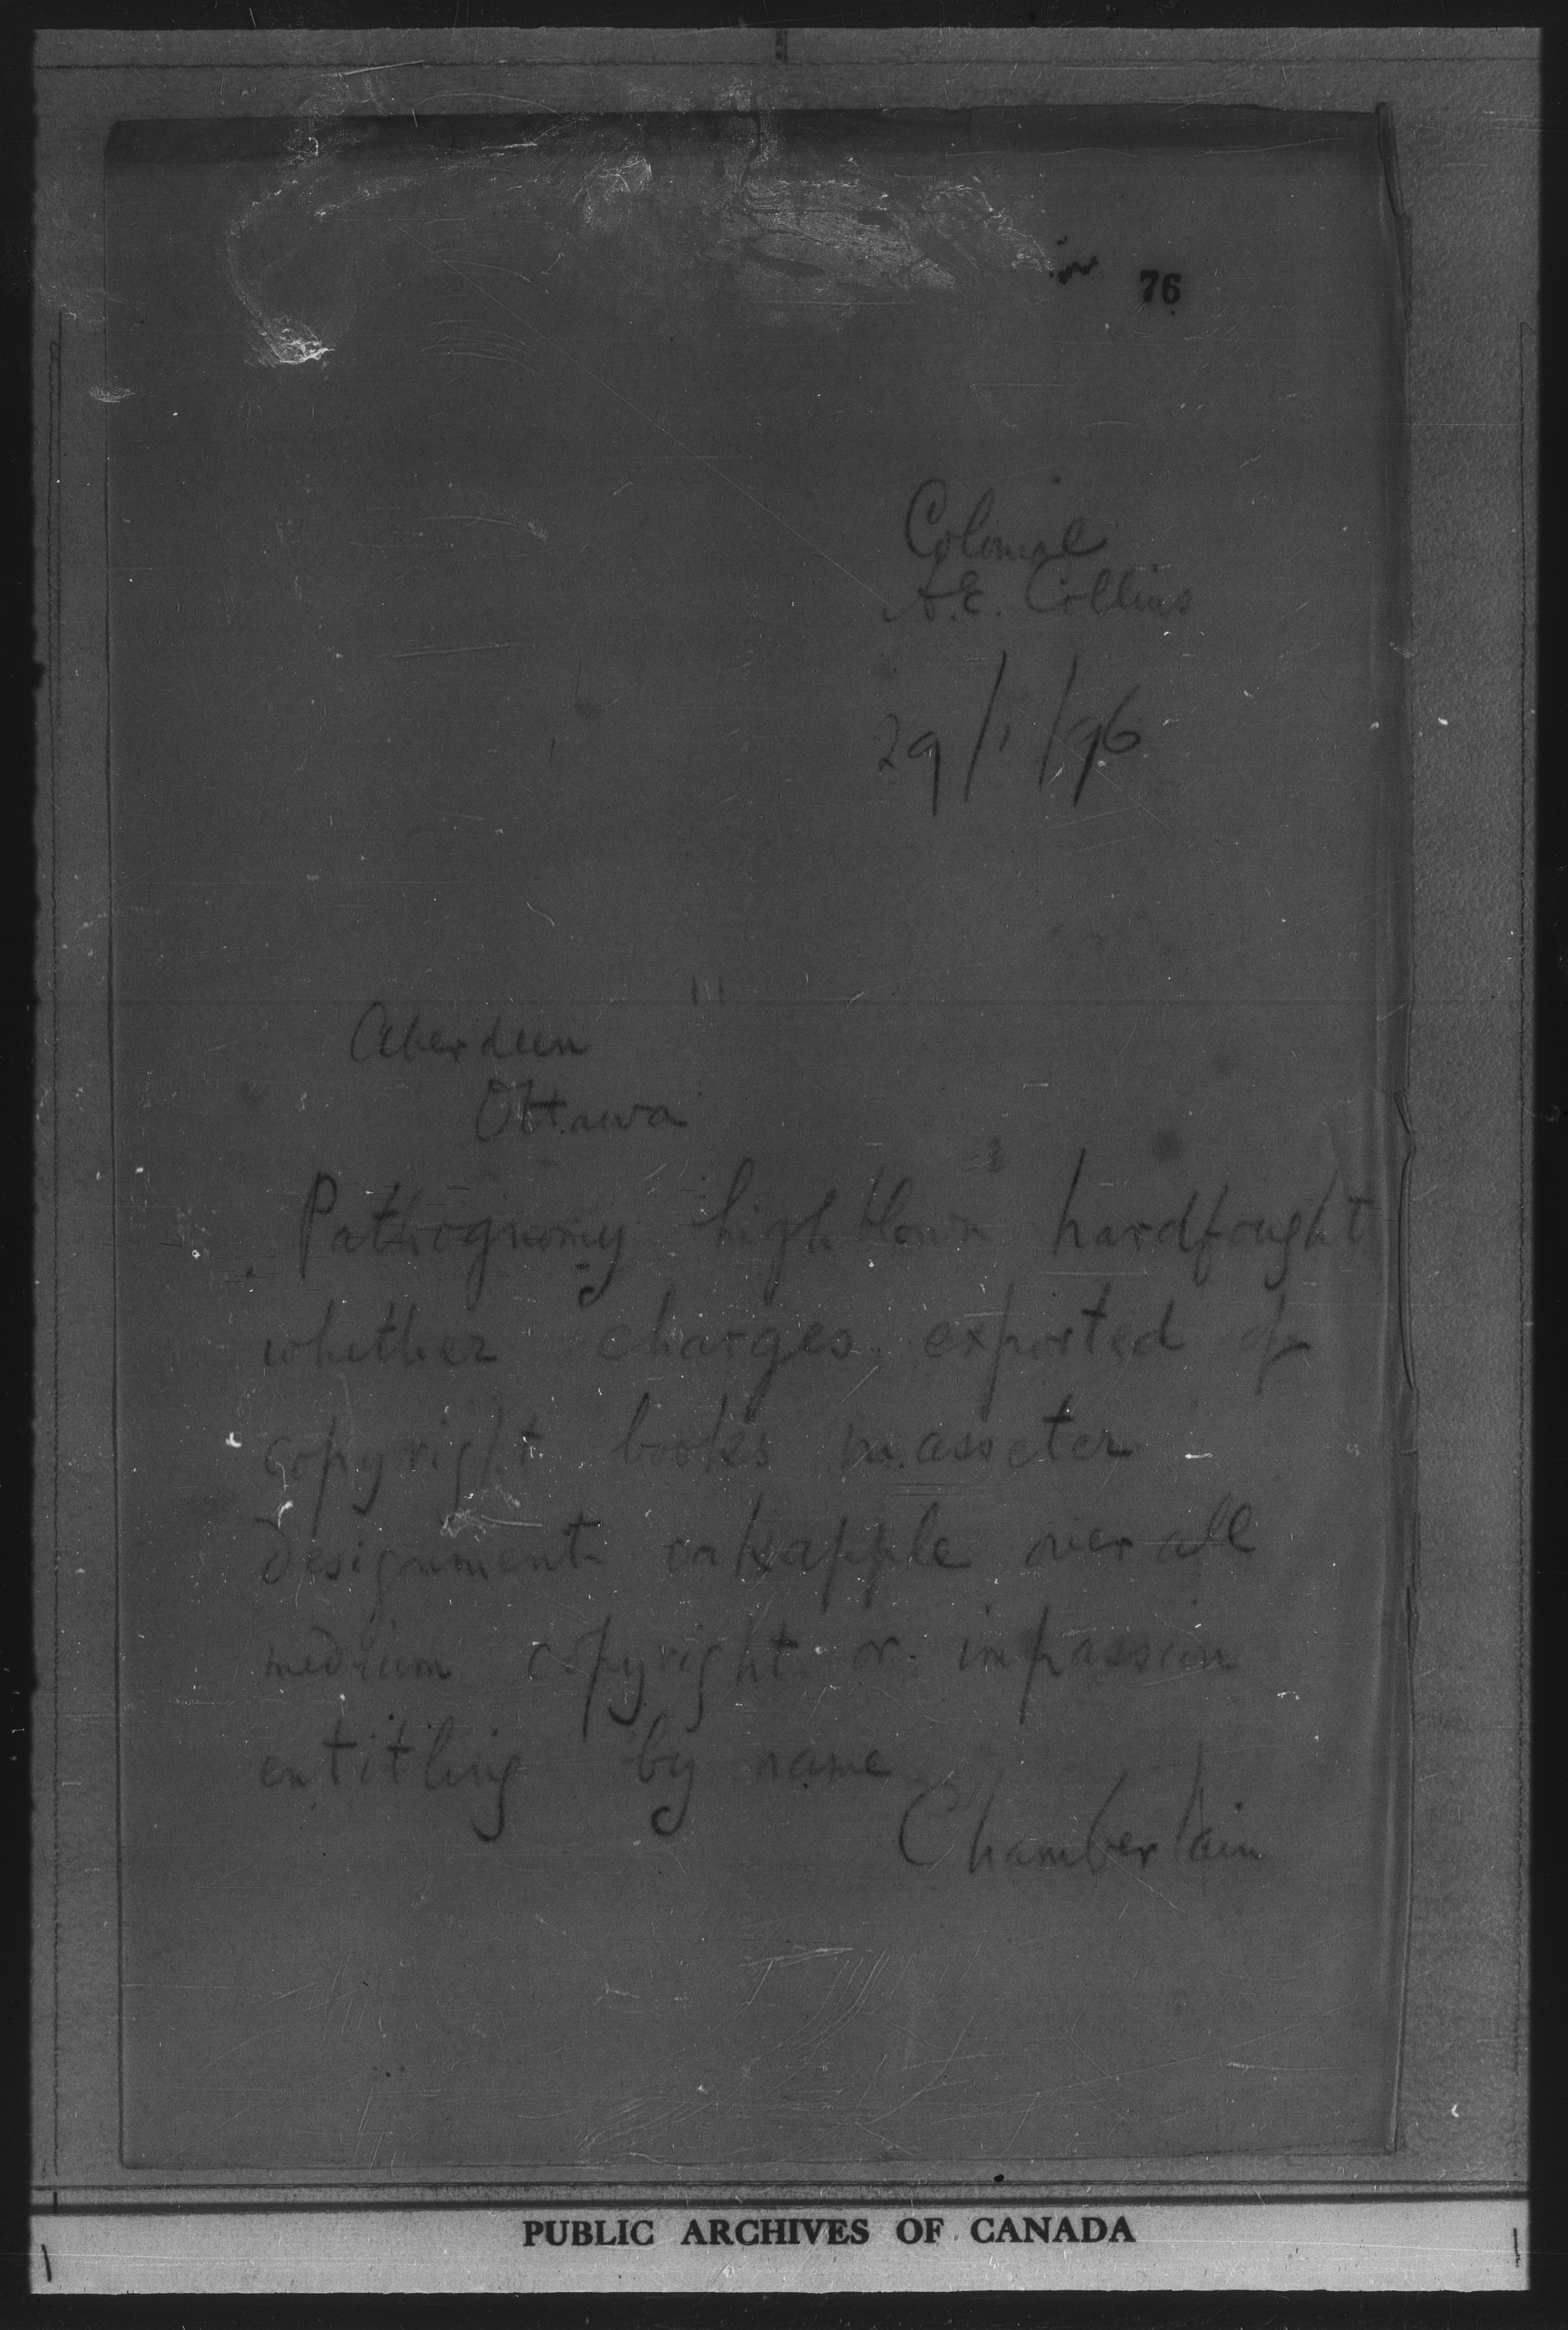 76
Colonial
A.E. Collins
29/1/96
Aberdeen
Ottawa
Pathognomy highblown hardfought
whether charges exported of
copyright books masseter
designment oakapple over all
medium copyright or impassion
entitling by name
Chamberlain
PUBLIC ARCHIVES OF CANADA